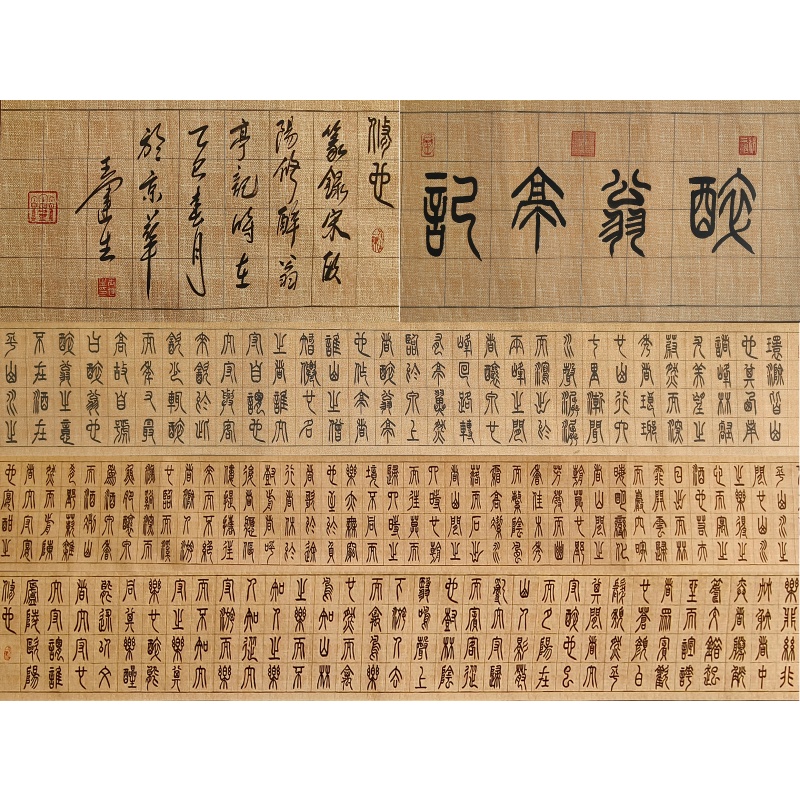 醉翁亭記
環滁皆山
也其西南
諸峰林壑
尤美望之
蔚然而深
秀者琅琊
也山行六
七里漸聞
水聲潺潺
而瀉出於
兩峰之間
者釀泉也
峰回路轉
有亭翼然
臨於泉上
者醉翁亭
也作亭者
誰山之僧
智僊也名
之者誰太
守自謂也
太守與客
來飲於此
飲少輒醉
而年又最
高故自號
曰醉翁也
醉翁之意
不在酒在
乎山水之
乎山水之
間也山水
之樂得之
心而寓之
酒也若夫
日出而林
霏開雲歸
而巖穴暝
晦明變化
者山間之
朝暮也野
芳發而幽
香佳木秀
而繁陰風
霜高潔水
落而石出
者山間之
四時也朝
而往暮而
歸四時之
景不同而
樂亦無窮
也至於負
者歌於途
行者休於
樹前者呼
後者應傴
僂提攜往
來而不絕
者滁人遊
也臨谿而
漁谿深而
魚肥釀泉
為酒泉香
而酒洌山
肴野蔌雜
然而前陳
者太守宴
也宴酣之
樂非絲非
竹射者中
弈者勝觥
籌交錯起
坐而諠譁
者眾賓歡
也蒼顏白
髮頹然乎
其間者太
守醉也已
而夕陽在
山人影散
亂太守歸
而賓客從
也樹林陰
翳鳴聲上
下遊人去
而禽鳥樂
也然而禽
鳥知山林
之樂而不
知人之樂
人知從太
守遊而樂
而不知太
守之樂其
樂也醉能
同其樂醒
能述以文
者太守也
太守謂誰
廬陵歐陽
脩也
脩也
篆錄宋歐
陽修醉翁
亭記時在
乙巳春月
於京華